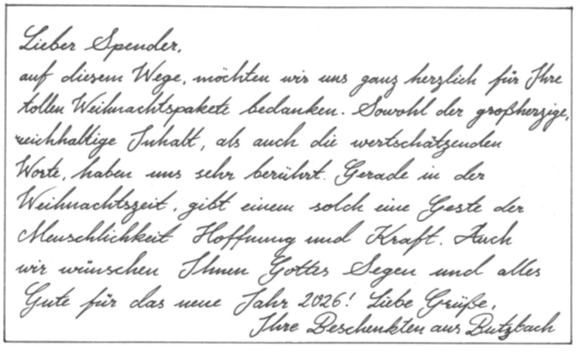 Lieber Spender,
auf diesem Wege, möchten wir uns ganz herzlich für Ihre
tollen Weihnachtspakete bedanken. Sowohl der großherzige,
reichhaltige Inhalt, als auch die wertschätzenden
Worte, haben uns sehr berührt. Gerade in der
Weihnachtszeit, gibt einem solch eine Geste der
Menschlichkeit Hoffnung und Kraft. Auch
wir wünschen Ihnen Gottes Segen und alles
Gute für das neue Jahr 2026! Liebe Grüße,
Ihre Beschenkten aus Butzbach